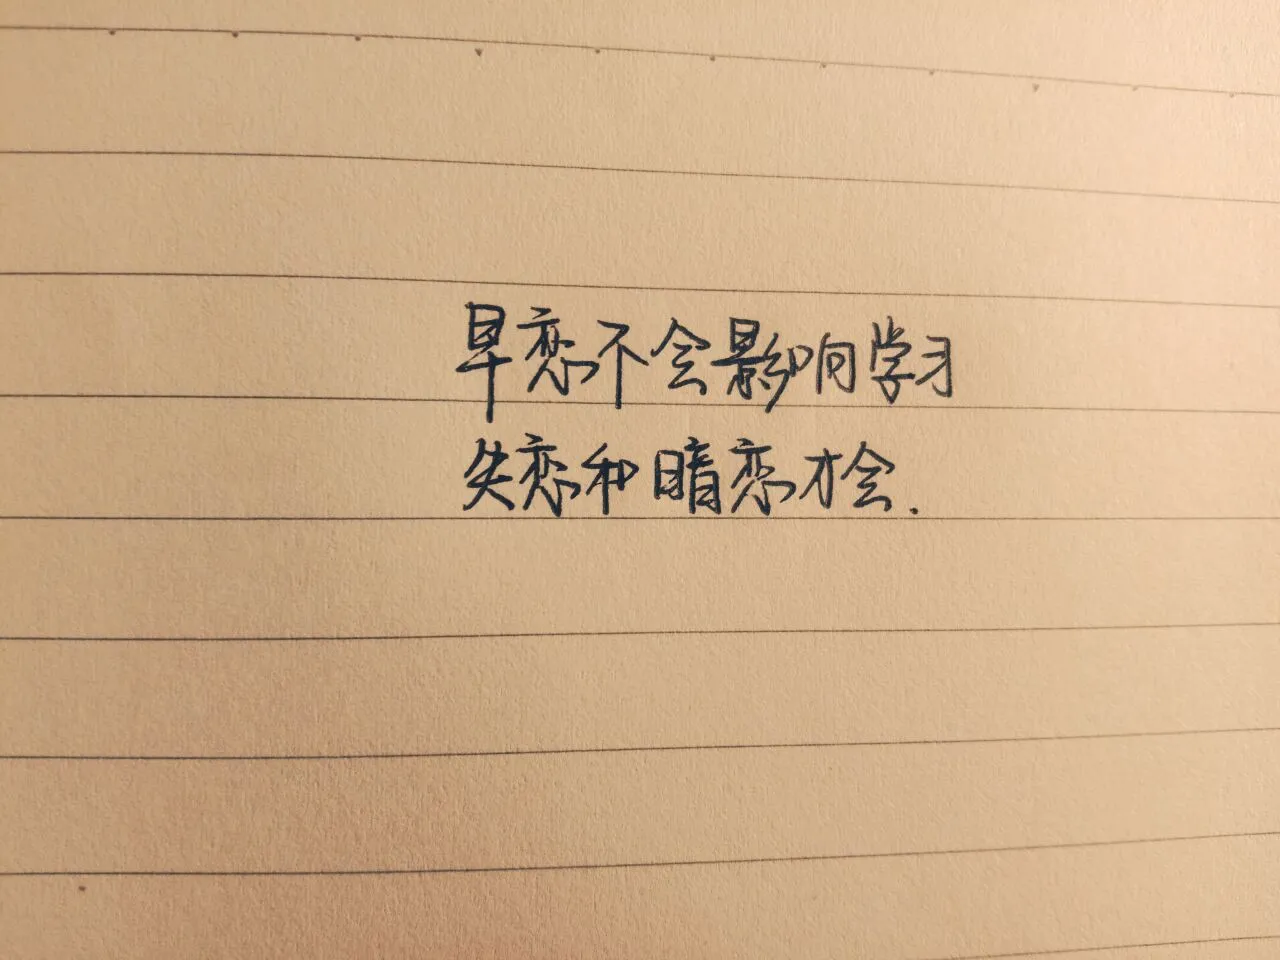 早恋不会影响学习
失恋和暗恋才会.